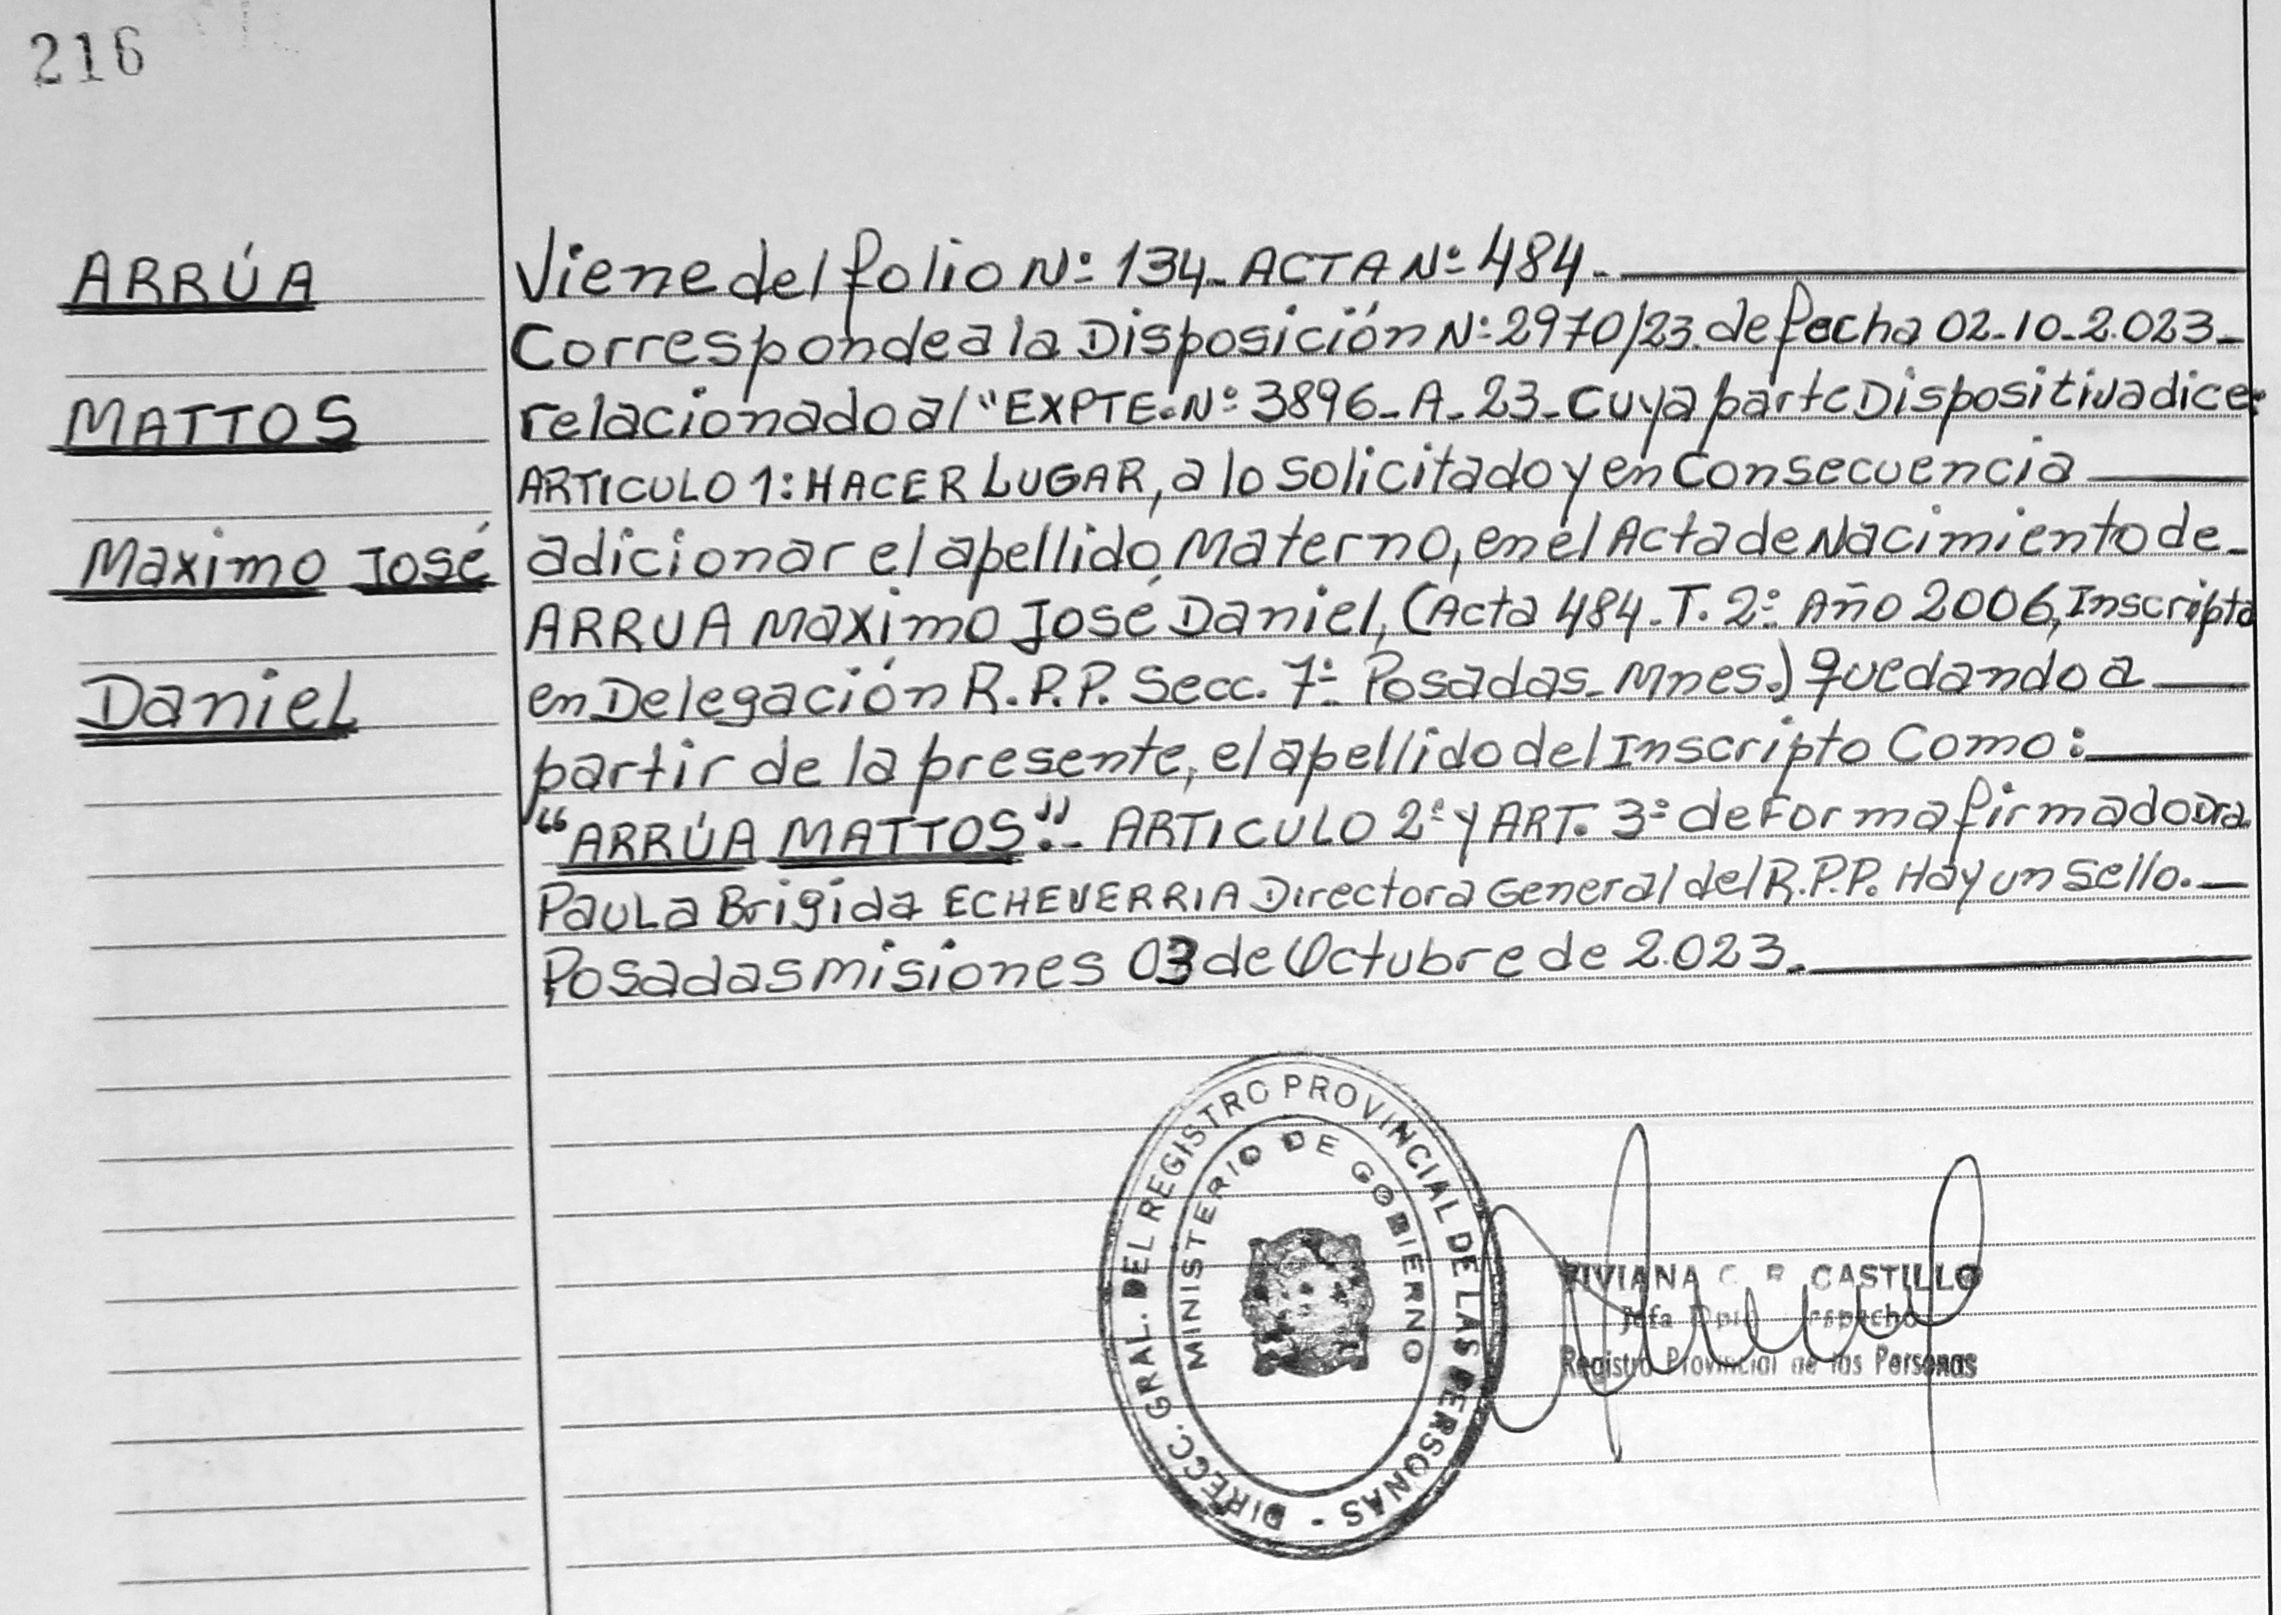 216
ARRÚA
MATTOS
Maximo José
Daniel
Viene del folio Nº 134_ ACTA Nº 484_
Corresponde a la Disposición Nº 2970/23. de fecha 02_10_2.023_
relacionado al "EXPTE. Nº 3896_A_23_ Cuya parte Dispositiva dice:
ARTICULO 1: HACER LUGAR, a lo solicitado y en Consecuencia
adicionar el apellido Materno, en el Acta de Nacimiento de_
ARRUA Maximo José Daniel, (Acta 484. T. 2º Año 2006, Inscripto
en Delegación R.P.P. Secc. 7º Posadas_Mnes.) quedando a
partir de la presente, el apellido del Inscripto Como:
"ARRÚA MATTOS"._ ARTICULO 2º y ART. 3º de Forma firmado Dra.
Paula Brigida ECHEVERRIA Directora General del R.P.P. Hay un Sello._
Posadas Misiones 03 de Octubre de 2.023._
DIRECC. GRAL. DEL REGISTRO PROVINCIAL DE LAS PERSONAS -
MINISTERIO DE GOBIERNO
VIVIANA C. R. CASTILLO
Jefa
Registro Provincial de las Personas